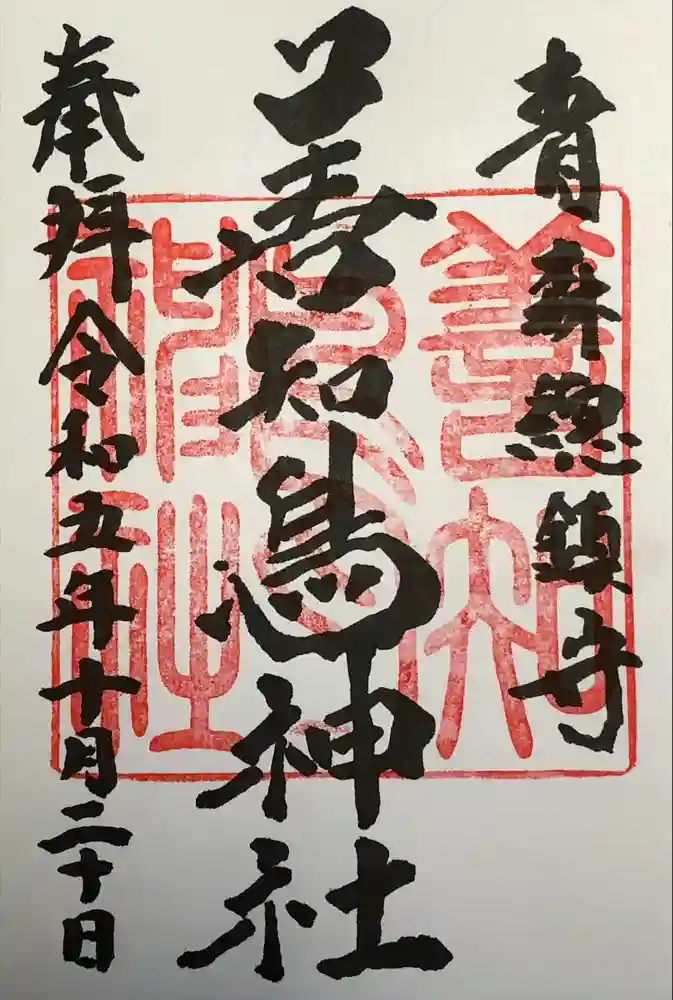 青森総鎮守
善知鳥神社
奉拝令和五年十月二十日